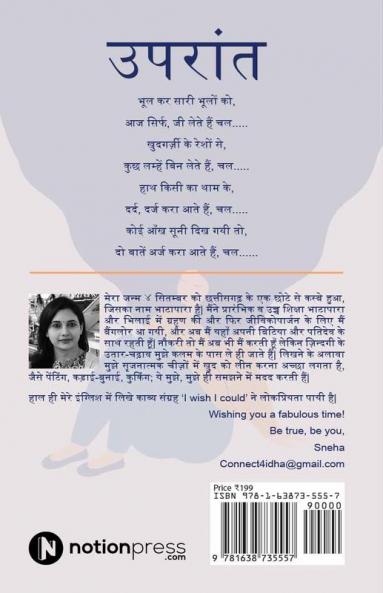 उपरांत
भूल कर सारी भूलों को,
आज सिर्फ, जी लेते हैं चल.....
खुदगर्ज़ी के रेशों से,
कुछ लम्हें बिन लेते हैं, चल...
हाथ किसी का थाम के,
दर्द, दर्ज करा आते हैं, चल....
कोई आँख सूनी दिख गयी तो,
दो बातें अर्ज करा आते हैं, चल......
मेरा जन्म ४ सितम्बर को छत्तीसगढ़ के एक छोटे से कस्बे हुआ,
जिसका नाम भाटापारा है| मैंने प्रारंभिक व उच्च शिक्षा भाटापारा
और भिलाई में ग्रहण की और फिर जीविकोपार्जन के लिए मैं
बैंगलोर आ गयी, और अब मैं यहाँ अपनी बिटिया और पतिदेव के
साथ रहती हूँ| नौकरी तो मैं अब भी मैं करती हूँ लेकिन ज़िन्दगी के
उतार-चढ़ाव मुझे कलम के पास ले ही जाते हैं| लिखने के अलावा
मुझे सृजनात्मक चीज़ों में खुद को लीन करना अच्छा लगता है,
जैसे पेंटिंग, कढ़ाई-बुनाई, कुकिंग; ये मुझे, मुझे ही समझने में मदद करती हैं|
हाल ही मेरे इंग्लिश में लिखे काव्य संग्रह 'I wish I could' ने लोकप्रियता पायी है|
Wishing you a fabulous time!
Be true, be you,
Sneha
Connect4idha@gmail.com
Price ₹199
ISBN 978-1-63873-555-7
90000
9 781638 735557
N notionpress
.com